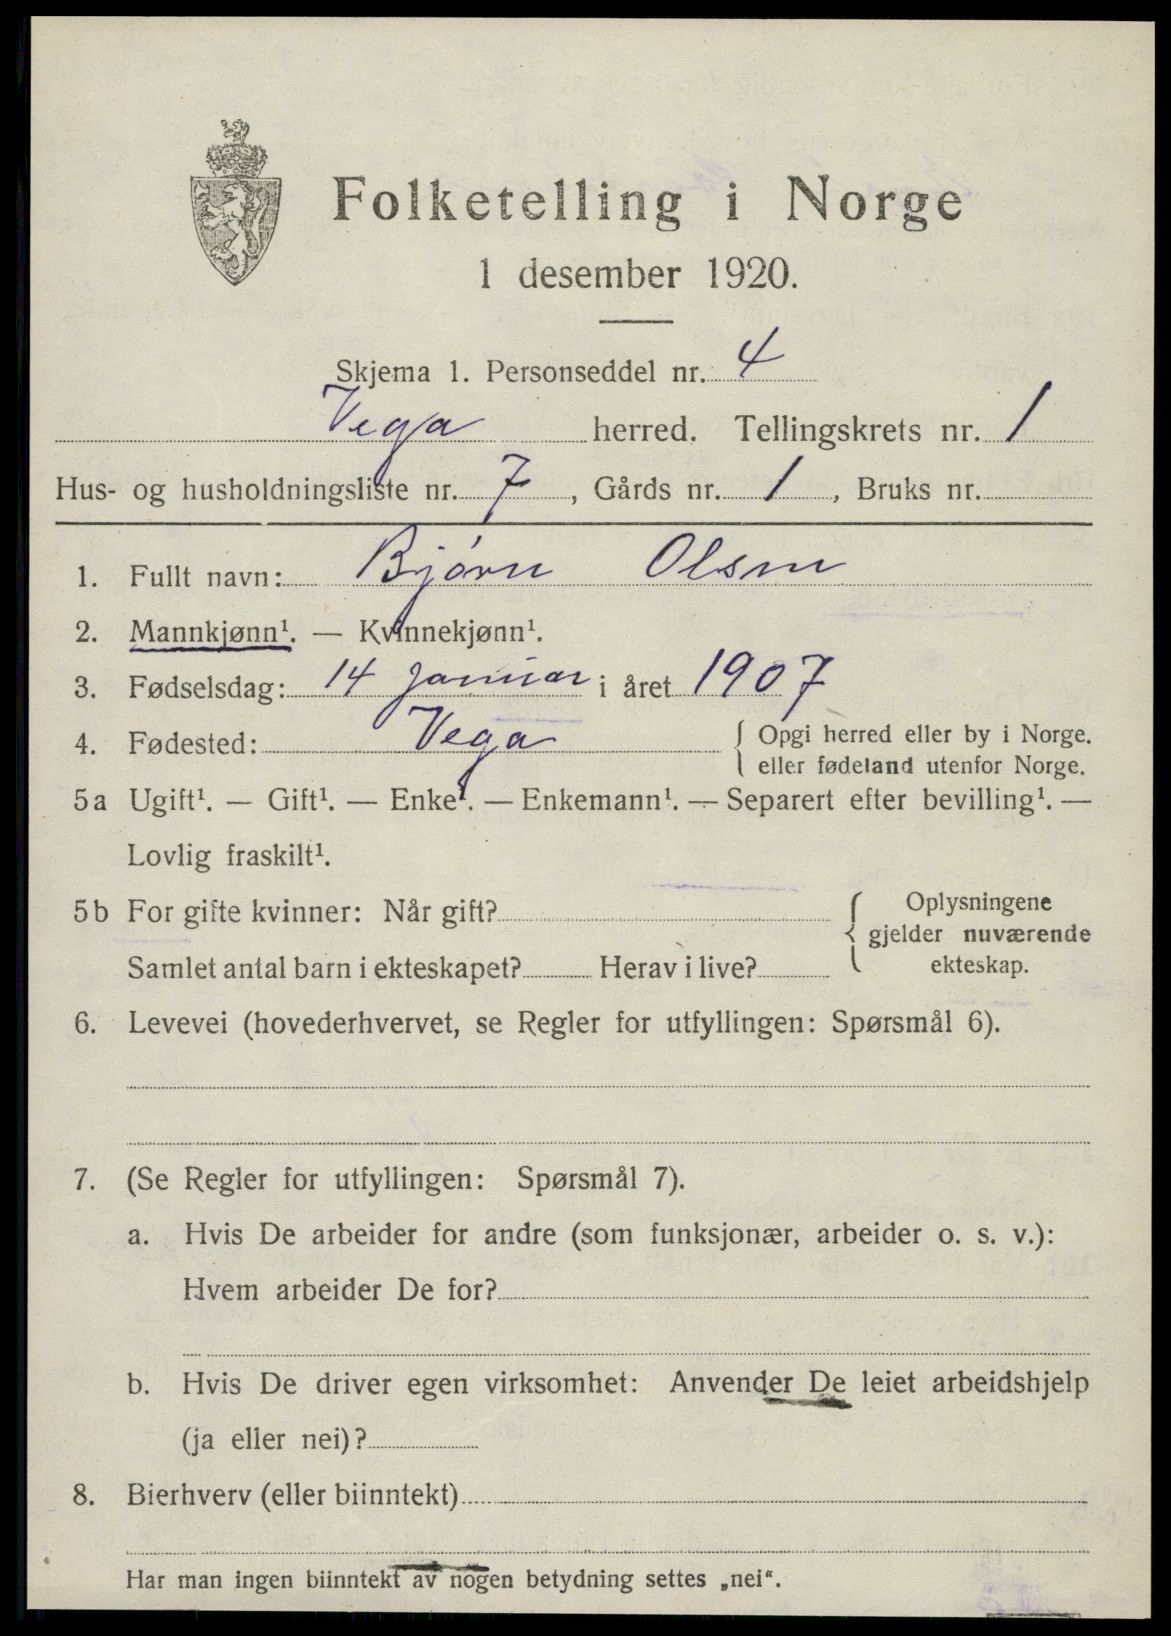 Folketelling i Norge
1 desember 1920.
Skjema 1. Personseddel nr. 4
Vega herred. Tellingskrets nr. 1
Hus- og husholdningsliste nr. 7, Gårds nr. 1, Bruks nr.
1. Fullt navn: Bjørn Olsen
2. Mannkjønn¹. — Kvinnekjønn¹.
3. Fødselsdag: 14 januar i året 1907
4. Fødested: Vega { Opgi herred eller by i Norge.
eller fødeland utenfor Norge.
5a Ugift¹. — Gift¹. — Enke¹. — Enkemann¹. — Separert efter bevilling¹. —
Lovlig fraskilt¹.
5b For gifte kvinner: Når gift? { Oplysningene
gjelder nuværende
ekteskap.
Samlet antal barn i ekteskapet? Herav i live?
6. Levevei (hovederhvervet, se Regler for utfyllingen: Spørsmål 6).
7. (Se Regler for utfyllingen: Spørsmål 7).
a. Hvis De arbeider for andre (som funksjonær, arbeider o. s. v.):
Hvem arbeider De for?
b. Hvis De driver egen virksomhet: Anvender De leiet arbeidshjelp
(ja eller nei)?
8. Bierhverv (eller biinntekt)
Har man ingen biinntekt av nogen betydning settes „nei“.